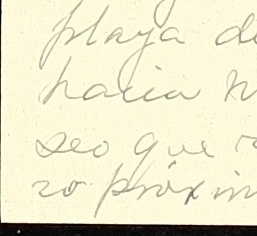 playa de
hacia
seo que
ro próxim